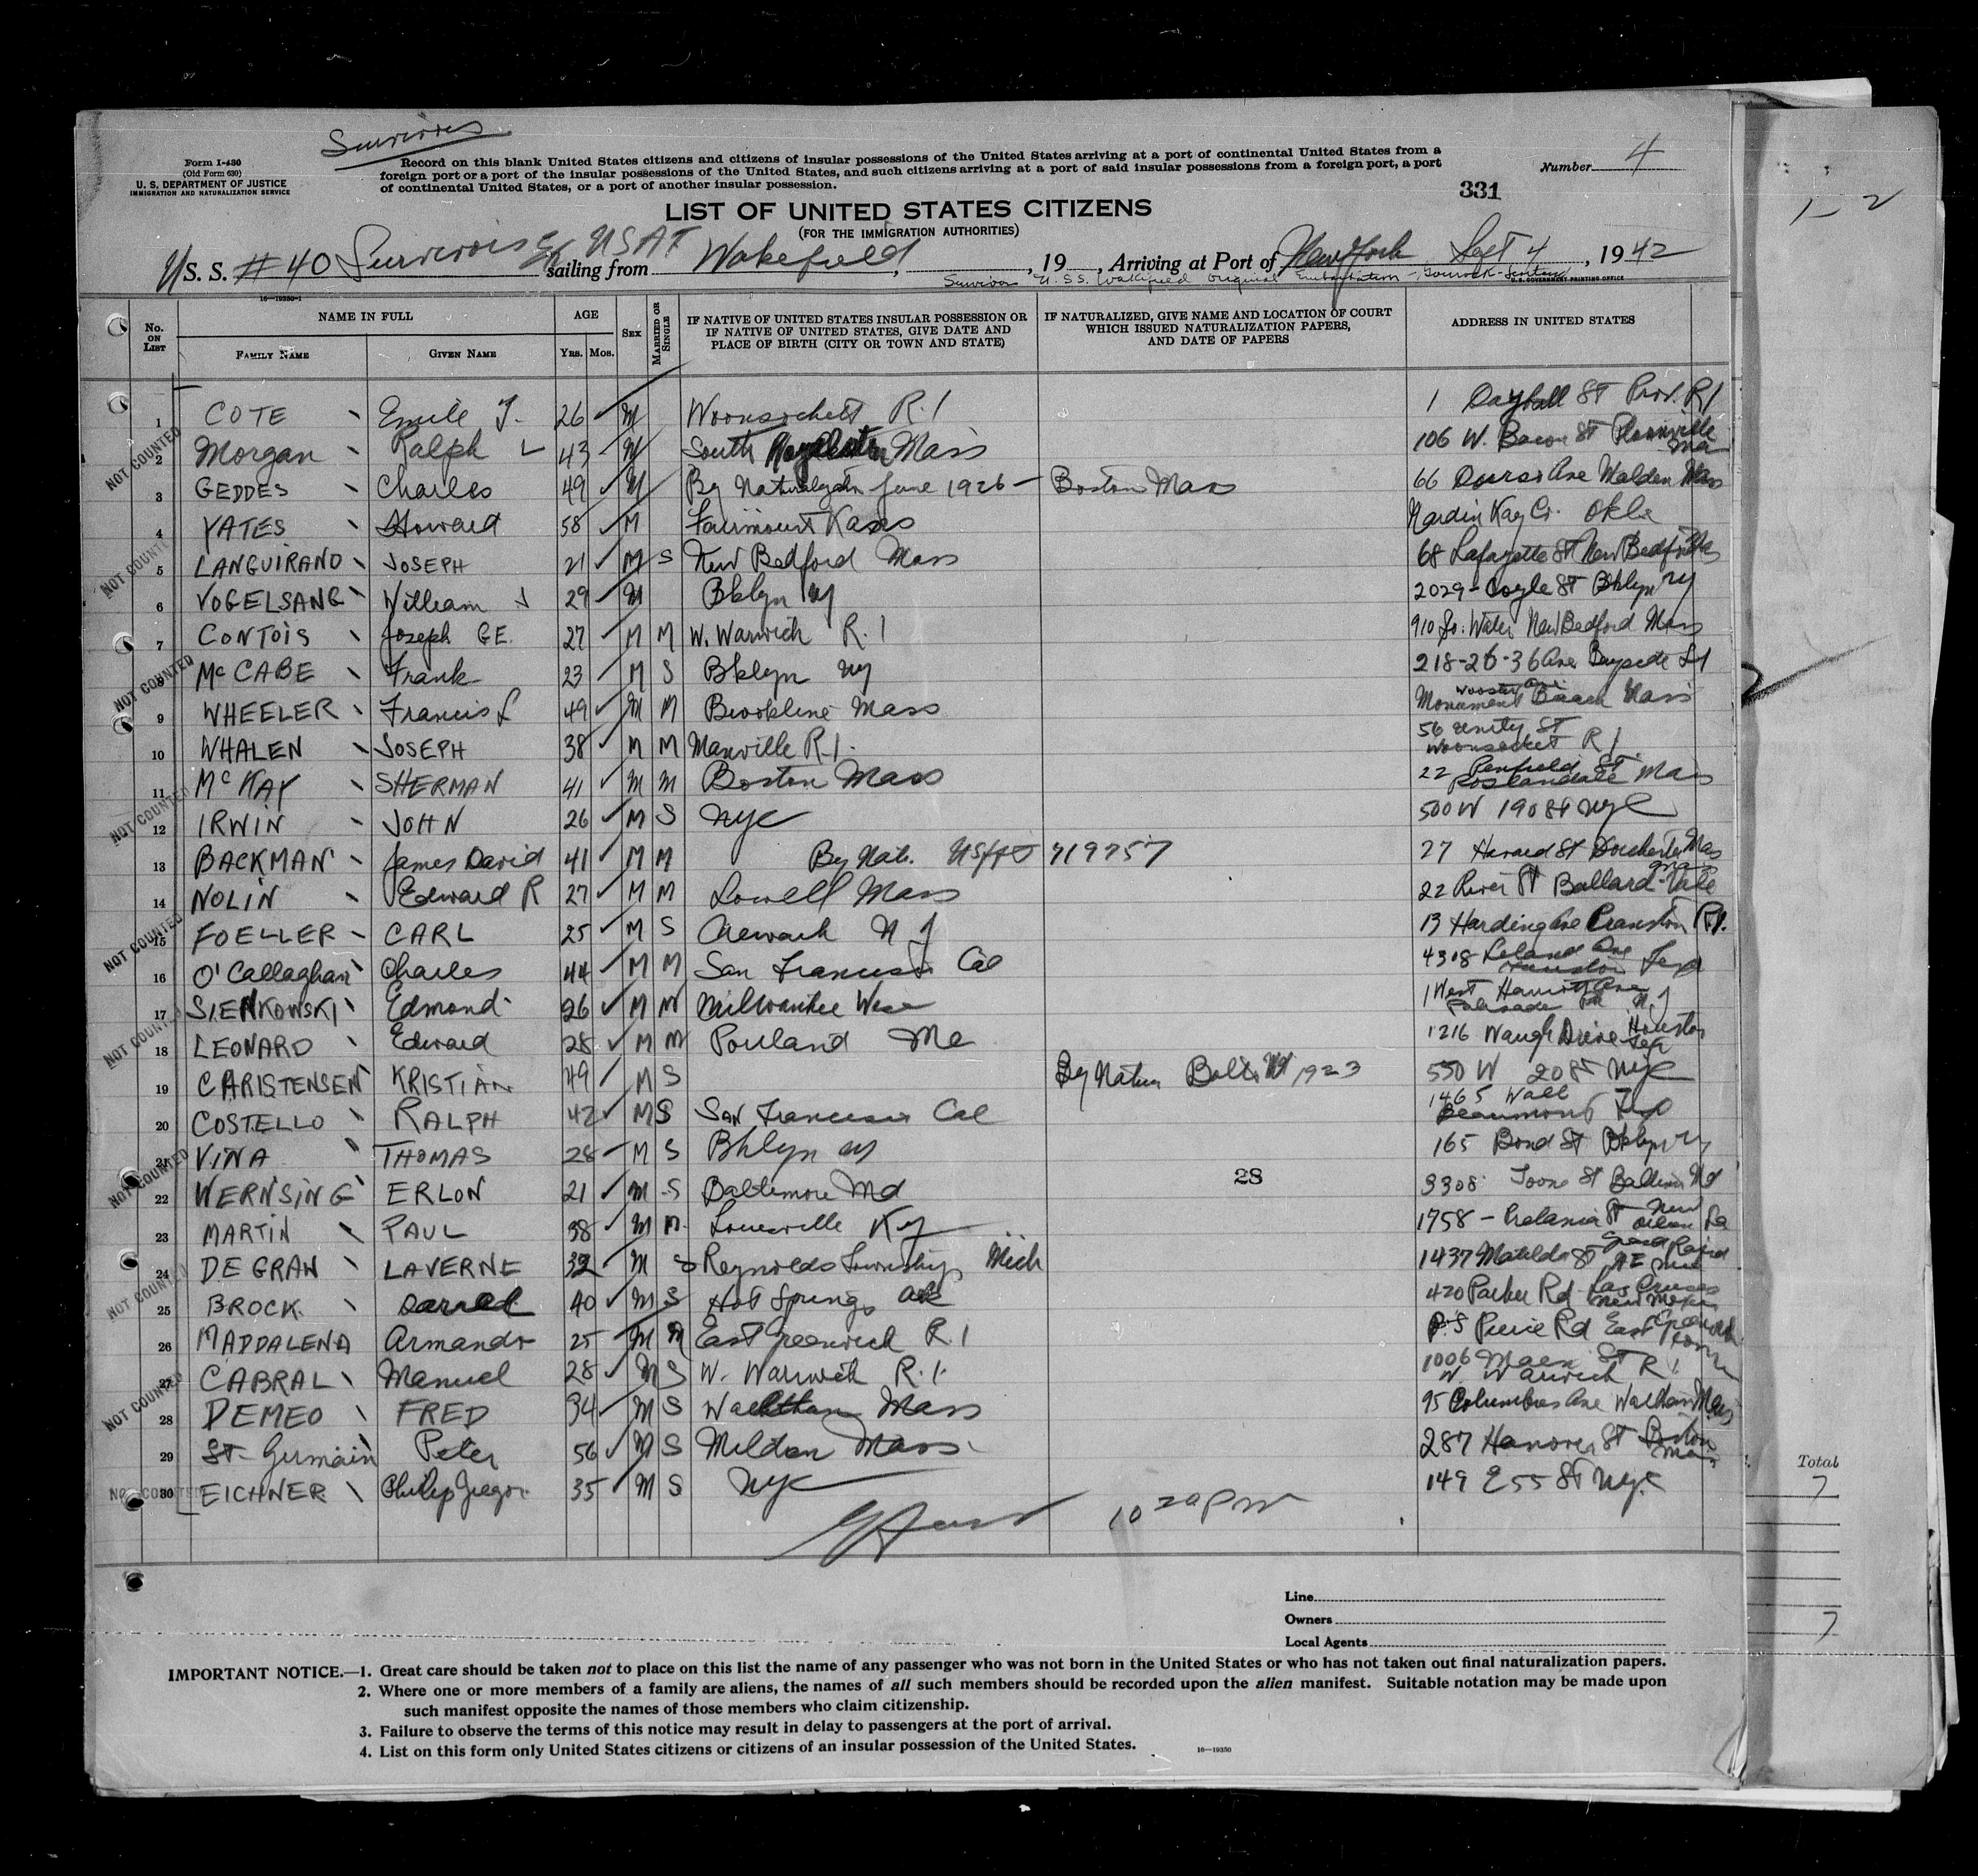 Survivors
Form I-430
(Old Form 630)
U. S. DEPARTMENT OF JUSTICE
IMMIGRATION AND NATURALIZATION SERVICE
Record on this blank United States citizens and citizens of insular possessions of the United States arriving at a port of continental United States from a
foreign port or a port of the insular possessions of the United States, and such citizens arriving at a port of said insular possessions from a foreign port, a port
of continental United States, or a port of another insular possession.
Number 4
331
1 - 2
LIST OF UNITED STATES CITIZENS
(FOR THE IMMIGRATION AUTHORITIES)
U S. S. #40 Survivors Ex USAT sailing from Wakefield, , 19 , Arriving at Port of New York Sept 4, 1942
Survivors U.S.S. Wakefield original Embarkation - Gourock-
U.S. GOVERNMENT PRINTING OFFICE
16-19350-1
No. ON LIST
NAME IN FULL
FAMILY NAME
GIVEN NAME
AGE
YRS.
MOS.
SEX
MARRIED OR SINGLE
IF NATIVE OF UNITED STATES INSULAR POSSESSION OR
IF NATIVE OF UNITED STATES, GIVE DATE AND
PLACE OF BIRTH (CITY OR TOWN AND STATE)
IF NATURALIZED, GIVE NAME AND LOCATION OF COURT
WHICH ISSUED NATURALIZATION PAPERS,
AND DATE OF PAPERS
ADDRESS IN UNITED STATES
1 COTE Emile J. 26 M Woonsockett R.I 1 Dayball St Prov. R I
2 Morgan Ralph L 43 M South Mass 106 W. Bacon St Plainville Ma
3 GEDDES Charles 49 M By June 1926 - Boston Mass 66 Ave Malden Mass
4 YATES Howard 58 M Fairmount Kans Nardin Kay Co. Okla
5 LANGUIRAND JOSEPH 21 M S New Bedford Mass 68 Lafayette St New Bedford
6 VOGELSANG William J 29 M Bklyn NY 2029 - Coyle St Bklyn NY
7 CONTOIS Joseph GE. 27 M M W. Warwich R.I 910 So. Water New Bedford Mass
8 McCABE Frank 23 M S Bklyn NY 218-26-36 Ave Bayside LI
9 WHEELER Francis L 49 M M Brookline Mass Wooster Ave. Monument Beach Mass
10 WHALEN JOSEPH 38 M M Manville R.I. 56 Unity St Woonsocket R I.
11 McKAY SHERMAN 41 M M Boston Mass 22 Penfield St Roslandale Mass
12 IRWIN JOHN 26 M S NYC 500 W 190 St NYC
13 BACKMAN James David 41 M M By Nat. 719757 27 Harvard St Dorchester Mas
14 NOLIN Edward R 27 M M Lowell Mass 22 River St Ballard-Vale Mass
15 FOELLER CARL 25 M S Newark N J 13 Harding Ave Cranston R.I.
16 O'Callaghan Charles 44 M M San Francisco Cal 4308 Leland Ave Houston Tex
17 SIENKOWSKI Edmond 26 M M Milwaukee Wisc 1 West Ave Palisade Pk N.J
18 LEONARD Edward 28 M M Portland Me 1216 Waugh Drive Houston Tex
19 CHRISTENSEN KRISTIAN 49 M S By Natur Balt. Md 1923 550 W 20 St NYC
20 COSTELLO RALPH 42 M S San Francisco Cal 1465 Wall Beaumont Tex
21 VINA THOMAS 28 M S Bklyn NY 165 Bond St Bklyn NY
28
22 WERNSING ERLON 21 M S Baltimore Md 3308 Toone St Baltim Md
23 MARTIN PAUL 38 M M Louisville Ky 1758 - St New Orlean La
24 DE GRAW LAVERNE 32 M S Reynolds Township Mich 1437 Matilda St NE Grand Rapid Mich
25 BROCK Darred 40 M S Hot Springs Ark 420 Parker Rd Las Cruces New Mexico
26 MADDALENA Armando 25 M M East Greenwich R I Peirce Rd East Greenwich
27 CABRAL Manuel 28 M S W. Warwich R.I. 1006 Main St W. Warwich R I
28 DEMEO FRED 34 M S Waltham Mass 95 Columbus Ave Waltham Mass
29 St-Germain Peter 56 M S Meldon Mass. 287 Hanover St Boston Mass
30 EICHNER Philip Gregor 35 M S NYC 149 E 55 St NYC
NOT COUNTED
NOT COUNTED
NOT COUNTED
NOT COUNTED
NOT COUNTED
NOT COUNTED
NOT COUNTED
NOT COUNTED
NOT COUNTED
NOT COUNTED
10 20 PM
Total
7
7
Line
Owners
Local Agents
IMPORTANT NOTICE.—1. Great care should be taken not to place on this list the name of any passenger who was not born in the United States or who has not taken out final naturalization papers.
2. Where one or more members of a family are aliens, the names of all such members should be recorded upon the alien manifest. Suitable notation may be made upon
such manifest opposite the names of those members who claim citizenship.
3. Failure to observe the terms of this notice may result in delay to passengers at the port of arrival.
4. List on this form only United States citizens or citizens of an insular possession of the United States.
16-19350